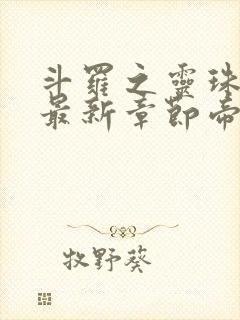 斗羅之靈珠
最新章節帝
牧野葵